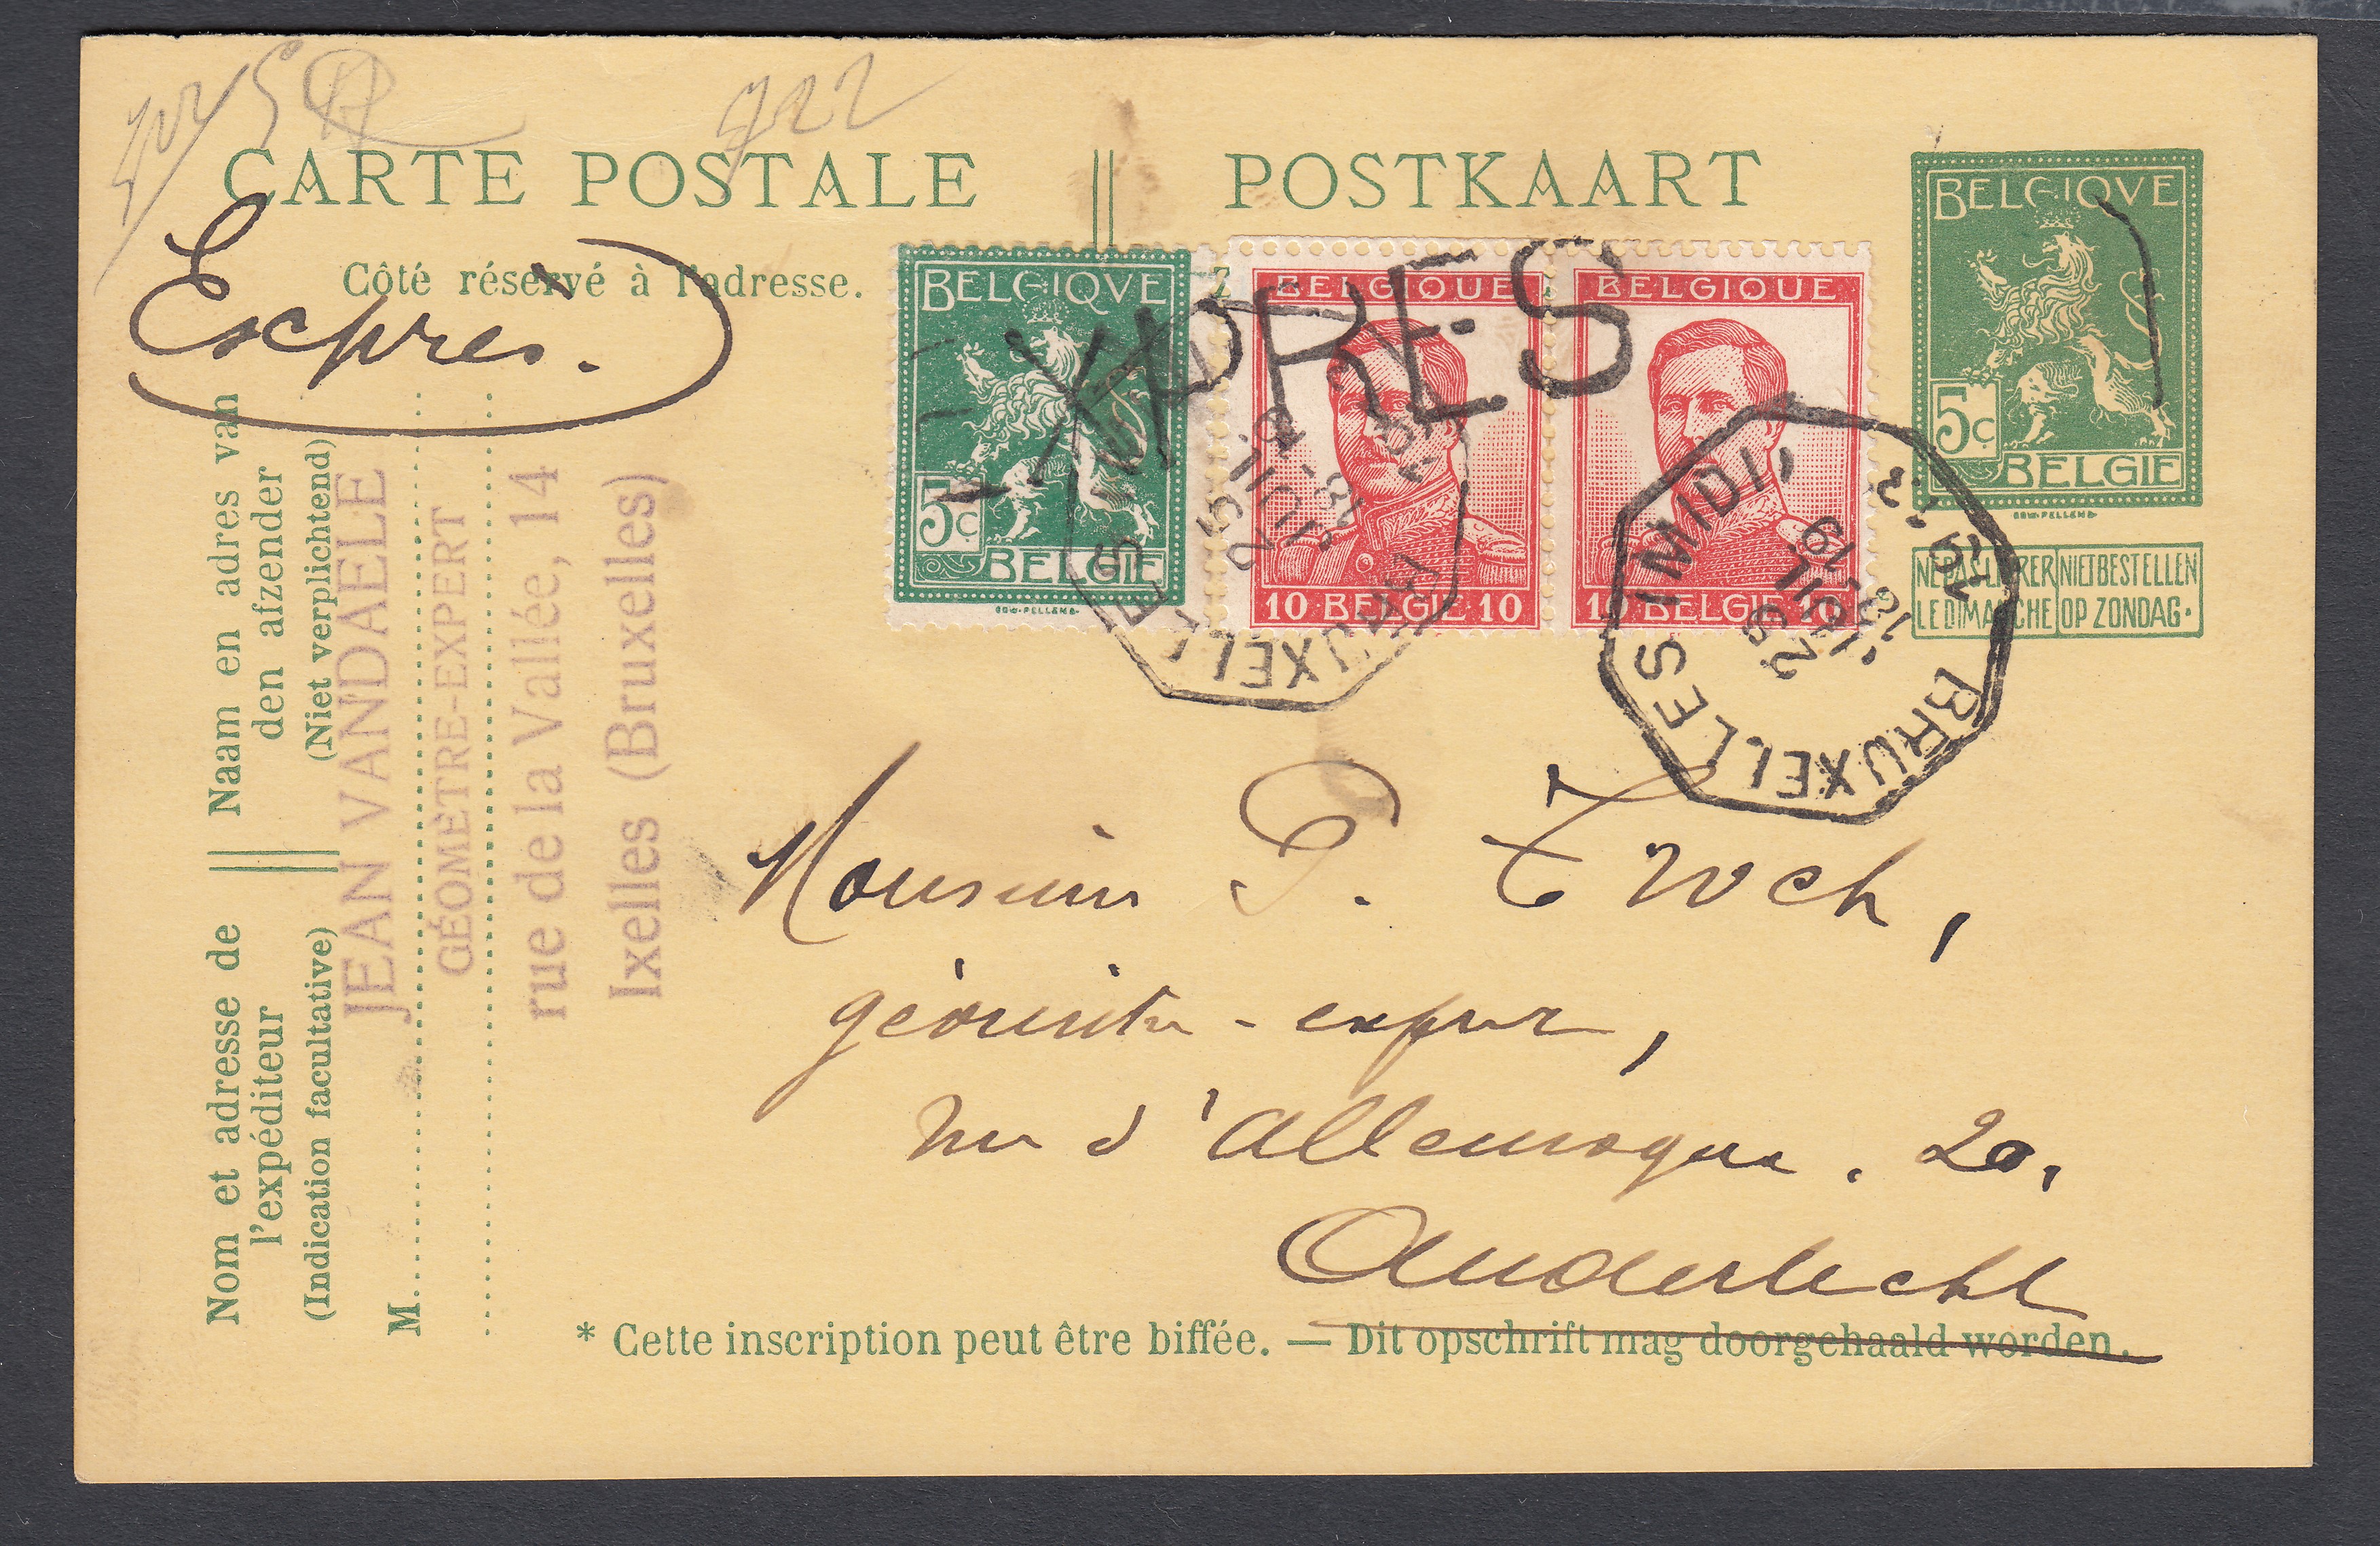 722
CARTE POSTALE
POSTKAART
Exprès.
Côté réservé à l'adresse.
BELGIQVE
5c
BELGIE
BELGIQUE
10 BELGIE 10
BELGIQUE
10 BELGIE 10
XPRES
BELGIQVE
5c
BELGIE
NE PAS LIVRER LE DIMANCHE
NIET BESTELLEN OP ZONDAG.
BRUXELLES (MIDI)
25 JUIL
13
BRUXELLES (MIDI)
19
25
JUIL
13
Naam en adres van
den afzender
(Niet verplichtend)
Nom et adresse de
l'expéditeur
(Indication facultative)
M
JEAN VANDAELE
GÉOMÈTRE-EXPERT
rue de la Vallée, 14
Ixelles (Bruxelles)
Monsieur P. Troch,
géomètre-expert,
rue d'Allemagne. 20,
Anderlecht
* Cette inscription peut être biffée. — Dit opschrift mag doorgehaald worden.